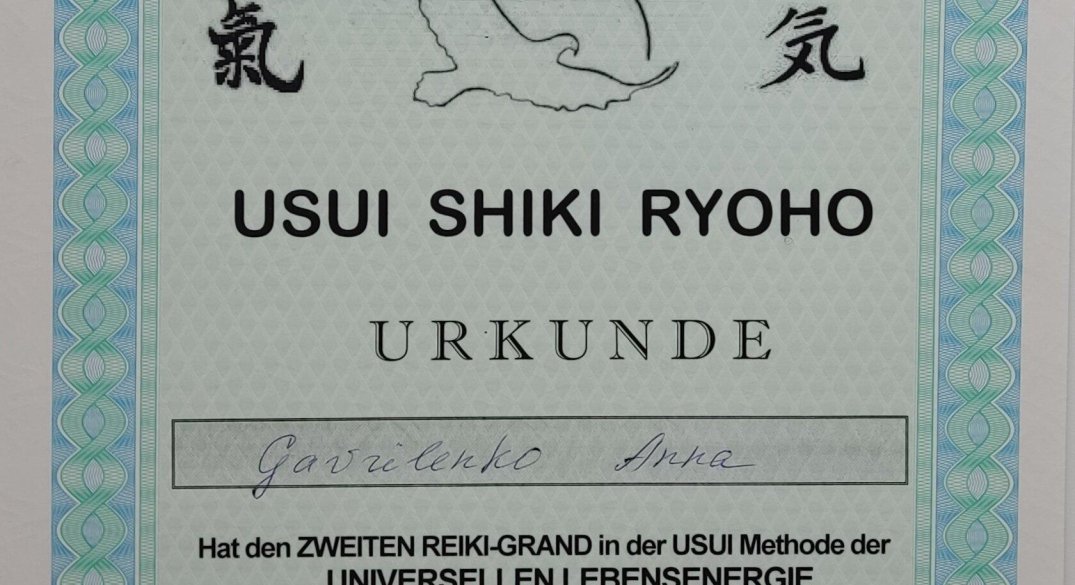 氣 気
USUI SHIKI RYOHO
URKUNDE
Gavrilenko Anna
Hat den ZWEITEN REIKI-GRAND in der USUI Methode der
UNIVERSELLEN LEBENSENERGIE